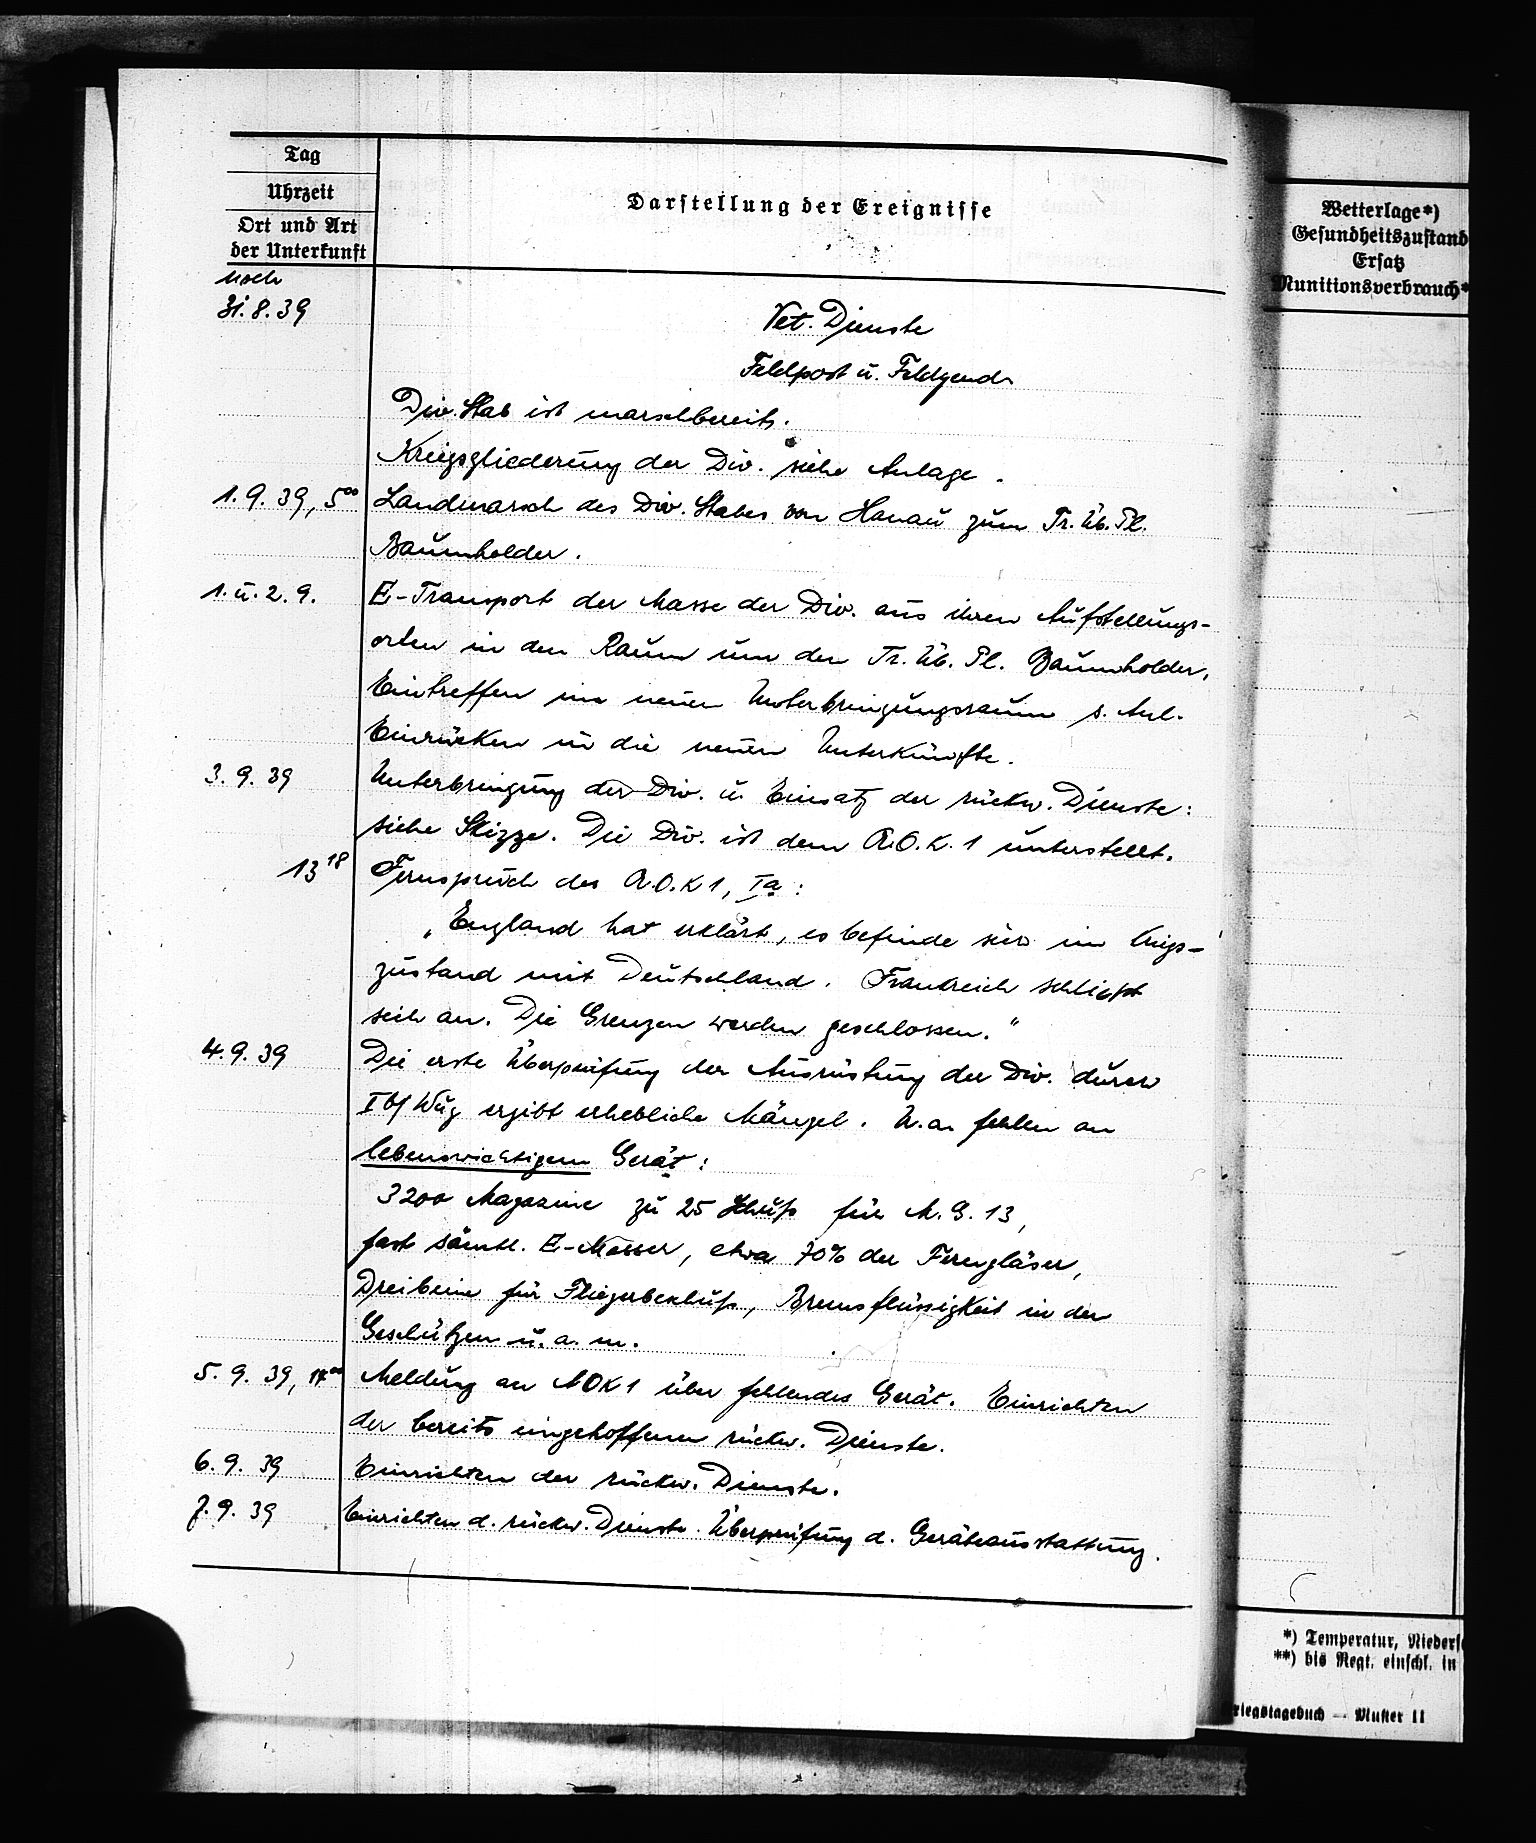 Tag
Uhrzeit
Ort und Art
der Unterkunft
Darstellung der Ereignisse
noch
31.8.39
Vet. Dienste
Feldpost u. Feldgend.
Div. Stab ist marschbereit.
Kriegsgliederung der Div. siehe Anlage.
1.9.39, 5⁰⁰ Landmarsch des Div. Stabes von Hanau zum Tr. Üb. Pl.
Baumholder.
1. u. 2. 9. E-Transport der Masse der Div. aus ihren Aufstellungs-
orten in den Raum um den Tr. Üb. Pl. Baumholder.
Eintreffen im neuen Unterbringungsraum s. Anl.
Einrücken in die neuen Unterkünfte.
3.9.39 Unterbringung der Div. u. Einsatz der rückw. Dienste:
siehe Skizze. Die Div. ist dem A.O.K. 1 unterstellt.
13¹⁸ Fernspruch des A.O.K 1, Ia:
„England hat erklärt, es befinde sich im Kriegs-
zustand mit Deutschland. Frankreich schließt
sich an. Die Grenzen werden geschlossen."
4.9.39 Die erste Überprüfung der Ausrüstung der Div. durch
Ib/WuG ergibt erhebliche Mängel. U.a. fehlen an
lebenswichtigem Gerät:
3200 Magazine zu 25 Schuß für M.G. 13,
fast sämtl. E-Messer, etwa 70% der Ferngläser,
Dreibeine für Fliegerbeschuß, Bremsflüssigkeit in den
Geschützen u. a. m.
5. 9. 39, Meldung an AOK 1 über fehlendes Gerät. Einrichten
der bereits eingetroffenen rückw. Dienste.
6.9.39 Einrichten der rückw. Dienste.
7.9.39 Einrichten d. rückw. Dienste. Überprüfung d. Geräteausstattung.
Wetterlage*)
Gesundheitszustand
Ersatz
Munitionsverbrauch*
*) Temperatur, Nieders
**) bis Regt. einschl. in
riegstagebuch — Muster 11